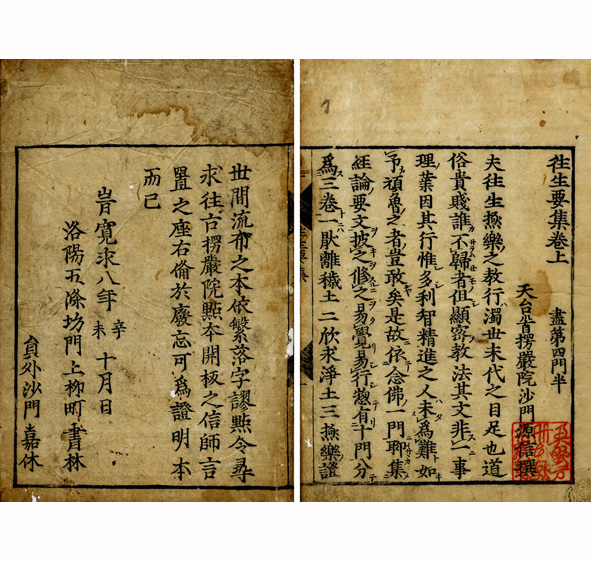 往生要集卷上　盡第四門半
天台首楞嚴院沙門源信撰
夫往生極樂之教行濁世末代之目足也道
俗貴賤誰不歸者但顯密教法其文非一事
理業因其行惟多利智精進之人未爲難如
予頑魯之者豈敢矣是故依念佛一門聊集
經論要文披之修之易覺易行惣有十門分
爲三卷一猒離穢土二欣求淨土三極樂證
世間流布之本依繁落字謬㸃令尋
求往古楞嚴院㸃本開板之信師言
置之座右備於廢忘可爲證明本
而已
旹寛永八年辛未十月日
洛陽五條坊門上柳町書林
員外沙門嘉休